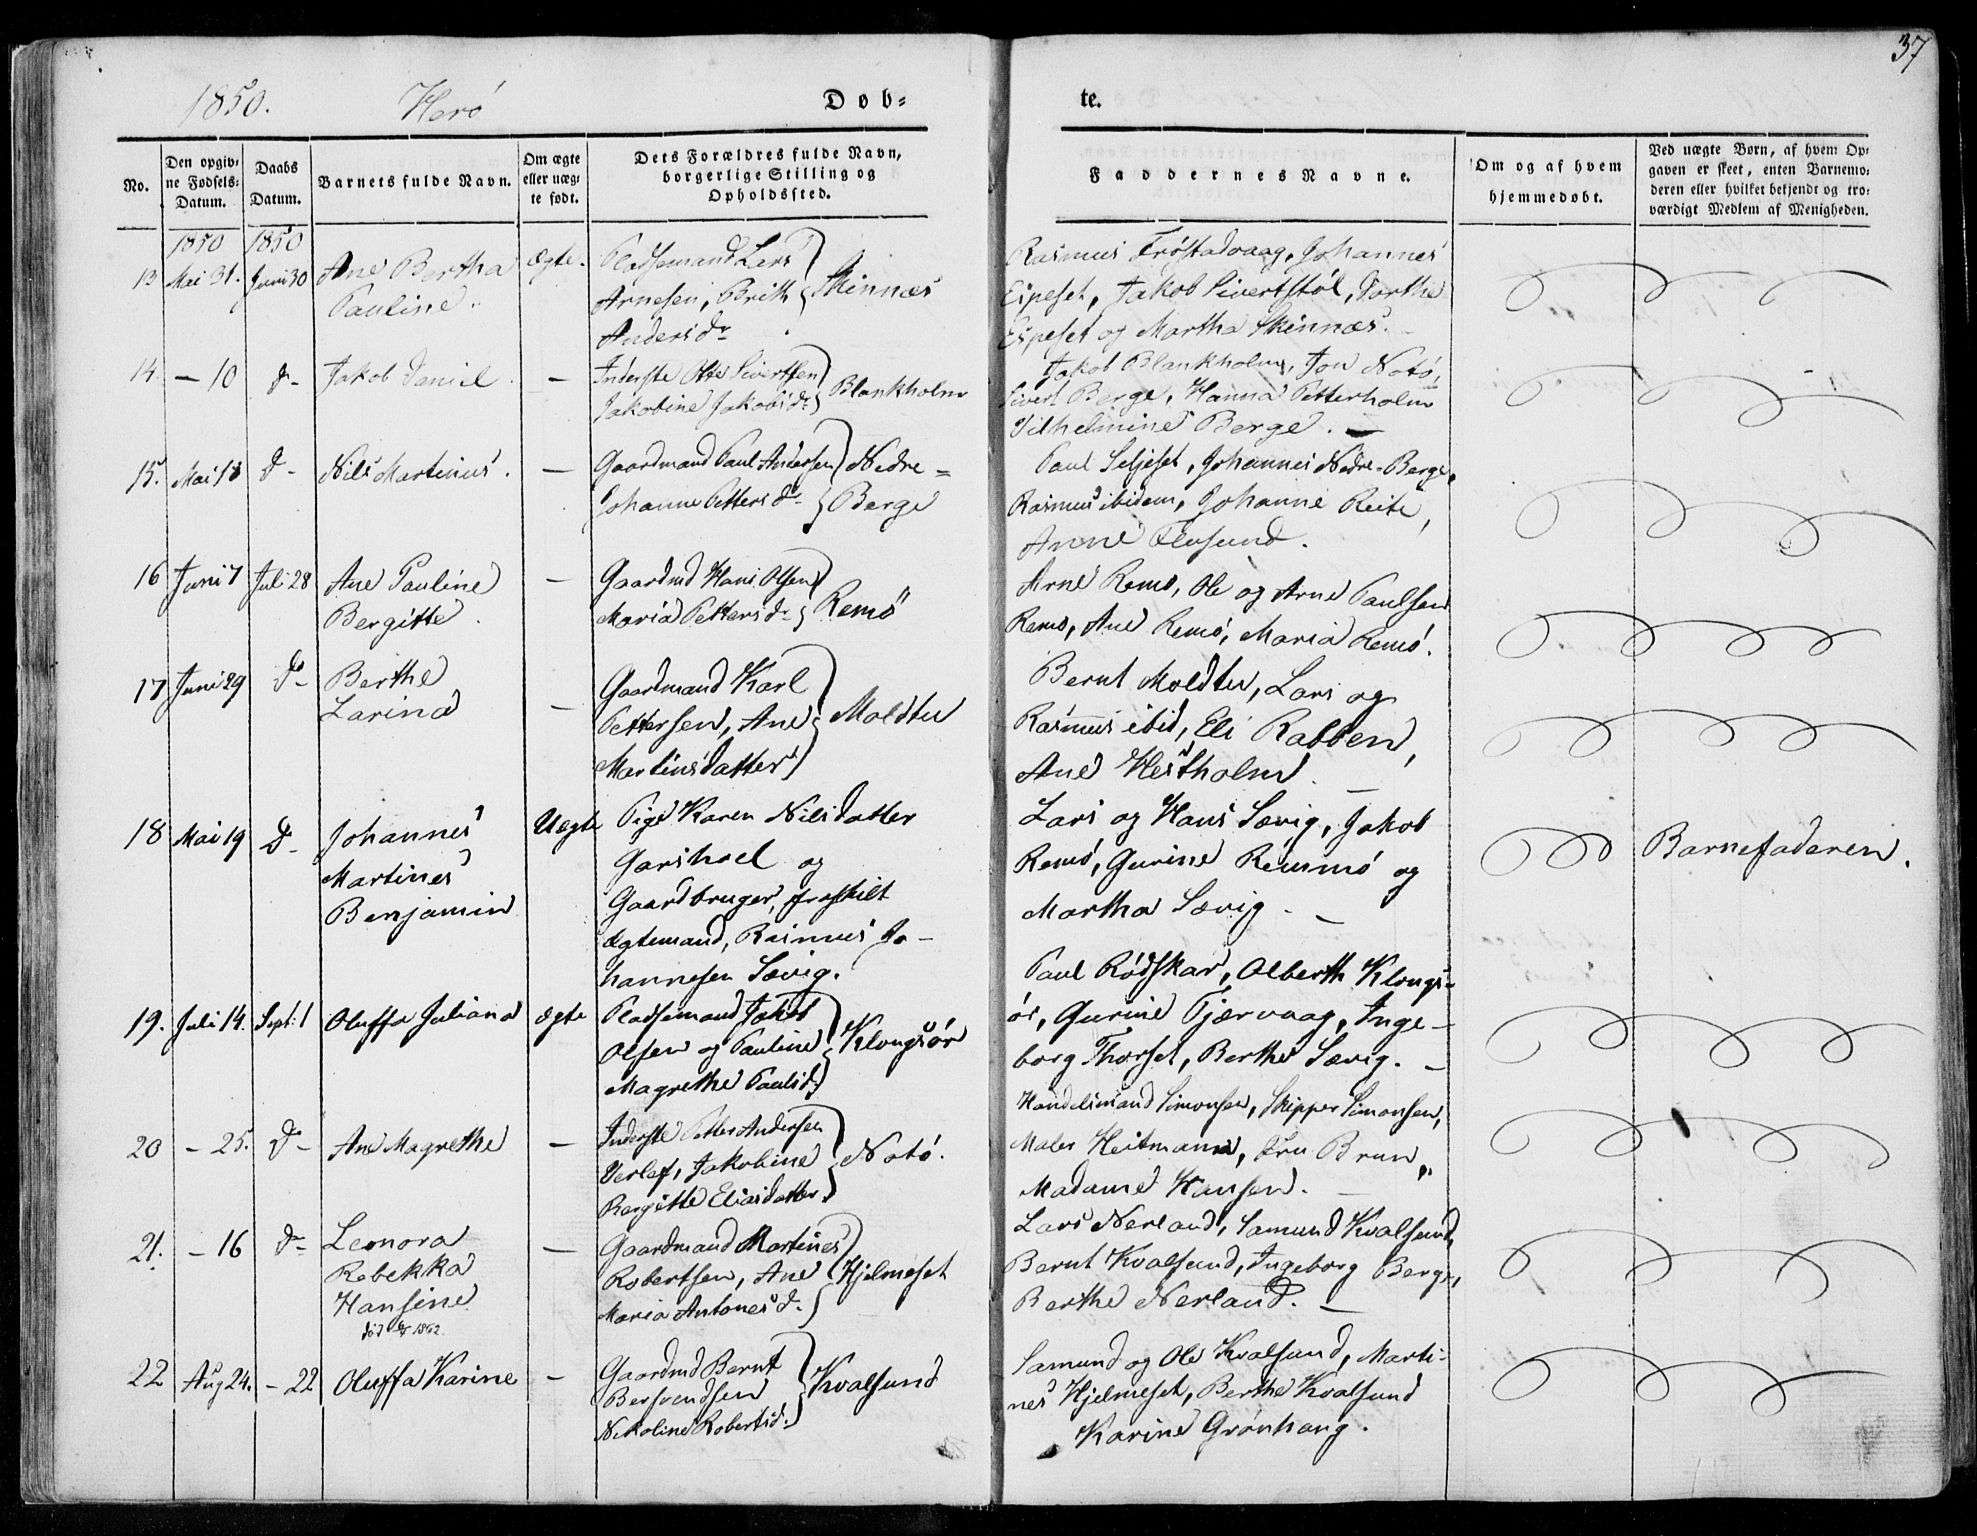 1850. Herö Døb- te. 37
No. Den opgivne Fødsels-Datum. Daabs Datum. Barnets fulde Navn. Om ægte eller uægte født. Dets Forældres fulde Navn, borgerlige Stilling og Opholdssted. Faddernes Navne. Om og af hvem hjemmedøbt. Ved uægte Børn, af hvem Opgaven er skeet, enten Barnemoderen eller hvilket bekjendt og troværdigt Medlem af Menigheden.
1850 1850
13 Mai 31. Juni 30 Ane Bertha Ægte. Pladsemand Lars
Pauline. Arnesen, Brith Skinnæs
Anders dr
Rasmus Frøstadvaag, Johannes
Espeset, Jakob Sivertstøl, Dorthe
Espeset og Martha Skinnæs.
14. — 10 d- Jakob Daniel — Inderste Otte Sivertsen
Jakobine Jakobs d. Blankholm
Jakob Blankholm, Jon Notö,
Sivert Berge, Hanna Petterholm
Vilhelmine Berge. —
15. Mai 18 d- Nils Martinus. — Gaardmand Paul Andersen Nedre=
Johanne Petters dr Berge
Paul Seljeset, Johannes Nedre-Berge,
Rasmus ibidem, Johanne Reite,
Anne Flusund.
16 Juni 7 Juli 28 Ane Pauline — Gaardmd Hans Olsen
Bergitte. Maria Petters dr Remö
Arne Remö, Ole og Arne Paulsen
Remö, Ane Remö, Maria Remö.
17 Juni 29 d- Berthe — Gaardmand Karl
Larina Pettersen, Ane Moldtu
Martinsdatter
Bernt Moldtu, Lars og
Rasmus ibid, Eli Rabben,
Ane Hestholm. —
18 Mai 19 D- Johannes Uægte Pige Karen Nilsdatter
Martines Garshoel og
Benjamin Gaardbruger, fraskilt
Ægtemand, Rasmus Jo-
hannesen Sævig.
Lars og Hans Sævig, Jakob
Remö, Gurine Remmö og
Martha Sævig. —
Barnefaderen.
19. Juli 14. Septr 1 Oluffa Juliana Ægte Pladsemand Jakob
Olsen og Pauline Klongsör
Magrethe Paulsd.
Paul Rödskar, Olberth Klongs-
ör, Gurine Tjærvaag, Inge-
borg Thorset, Berthe Sævig. —
20 — 25. d- Ane Magrethe — Inderste Petter Andersen
Verlef, Jakobine Notö.
Bergitte Eliasdatter
Handelsmand Simonsen, Skipper Simonsen,
Maler Heitmann, Fru Brun,
Madame Hansen. —
21. — 16 d- Leonora — Gaardmand Martines
Rebekka Robertsen, Ane Hjelmeset
Hansine Maria Antones d.
död 1862.
Lars Nerland, Samund Kvalsund,
Bernt Kvalsund, Ingeborg Berge,
Berthe Nerland. —
22 Aug 24. — 22 Oluffa Karine — Gaardmd Bernt
Bersvendsen Kvalsund
Nikoline Roberts d.
Samund og Ole Kvalsund, Marti-
nes Hjelmeset, Berthe Kvalsund
Karine Grönhaug.